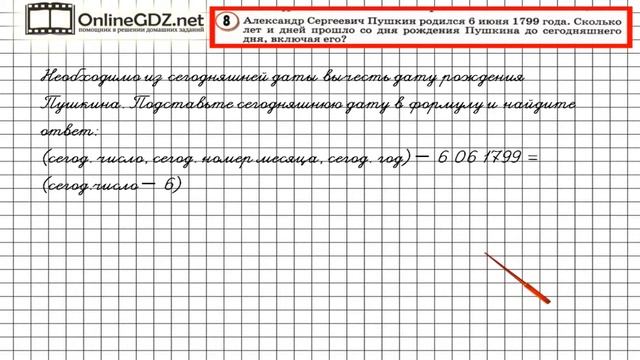 OnlineGDZ.net
помощник в решении домашних заданий
8
Александр Сергеевич Пушкин родился 6 июня 1799 года. Сколько
лет и дней прошло со дня рождения Пушкина до сегодняшнего
дня, включая его?
Необходимо из сегодняшней даты вычесть дату рождения
Пушкина. Подставьте сегодняшнюю дату в формулу и найдите
ответ:
(сегод. число, сегод. номер месяца, сегод. год) — 6 06 1799 =
(сегод.число — 6)